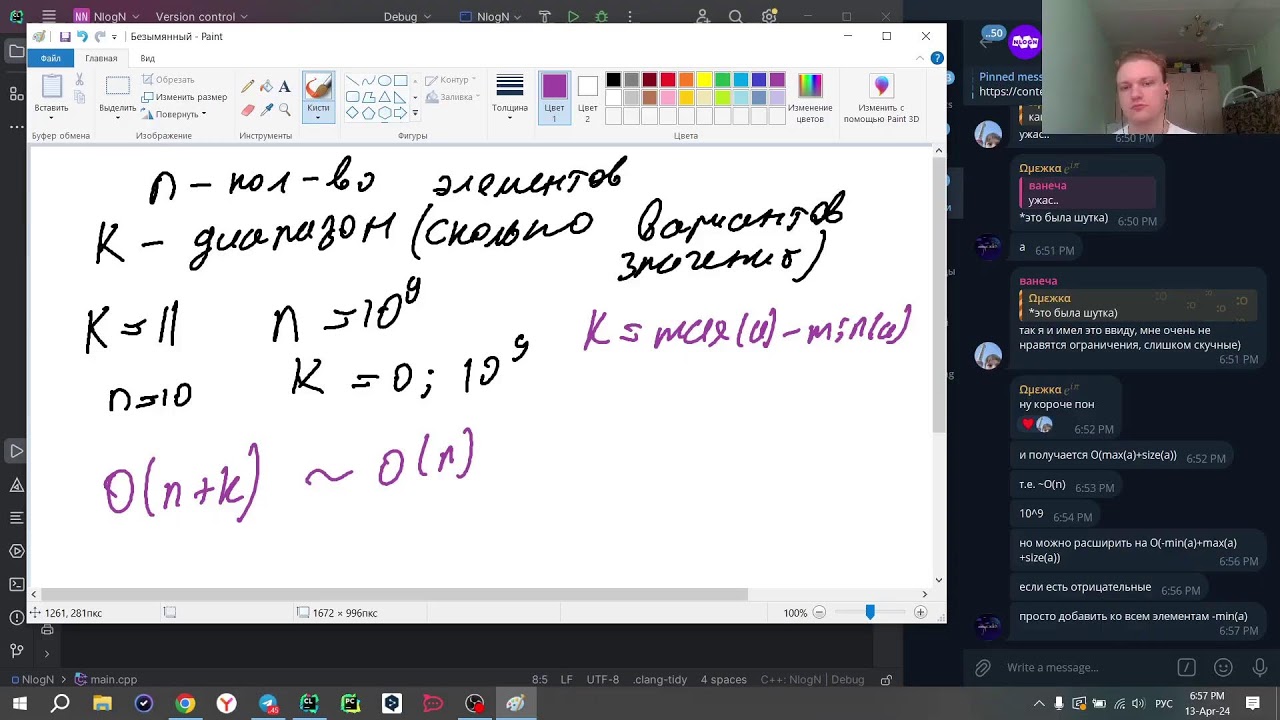 NN NlogN Version control Debug NlogN
Безымянный - Paint
Файл Главная Вид
Вставить
Выделить
Обрезать
Изменить размер
Повернуть
Кисти
Контур
Заливка
Толщина
Цвет 1
Цвет 2
Изменение цветов
Изменить с помощью Paint 3D
Буфер обмена Изображение Инструменты Фигуры Цвета
n - кол-во элементов
K - диапазон (сколько вариантов
значений)
K=11 n=10^9 K=max(a)-min(a)
n=10 K=0; 10^9
O(n+k) ~ O(n)
1261, 281пкс 1672 × 996пкс 100%
NlogN main.cpp 8:5 LF UTF-8 .clang-tidy 4 spaces C++: NlogN | Debug
..50
NLOGN
Pinned mess
https://conte
ужас.. 6:50 PM
Ωμεжка
ванеча
ужас..
*это была шутка) 6:50 PM
а 6:51 PM
ванеча
Ωμεжка
*это была шутка)
так я и имел это ввиду, мне очень не
нравятся ограничения, слишком скучные)
6:51 PM
Ωμεжка
ну короче пон
6:52 PM
и получается O(max(a)+size(a)) 6:52 PM
т.е. ~O(n) 6:53 PM
10^9 6:54 PM
но можно расширить на O(-min(a)+max(a)
+size(a)) 6:56 PM
если есть отрицательные 6:56 PM
просто добавить ко всем элементам -min(a)
6:57 PM
Write a message...
45
РУС
6:57 PM
13-Apr-24